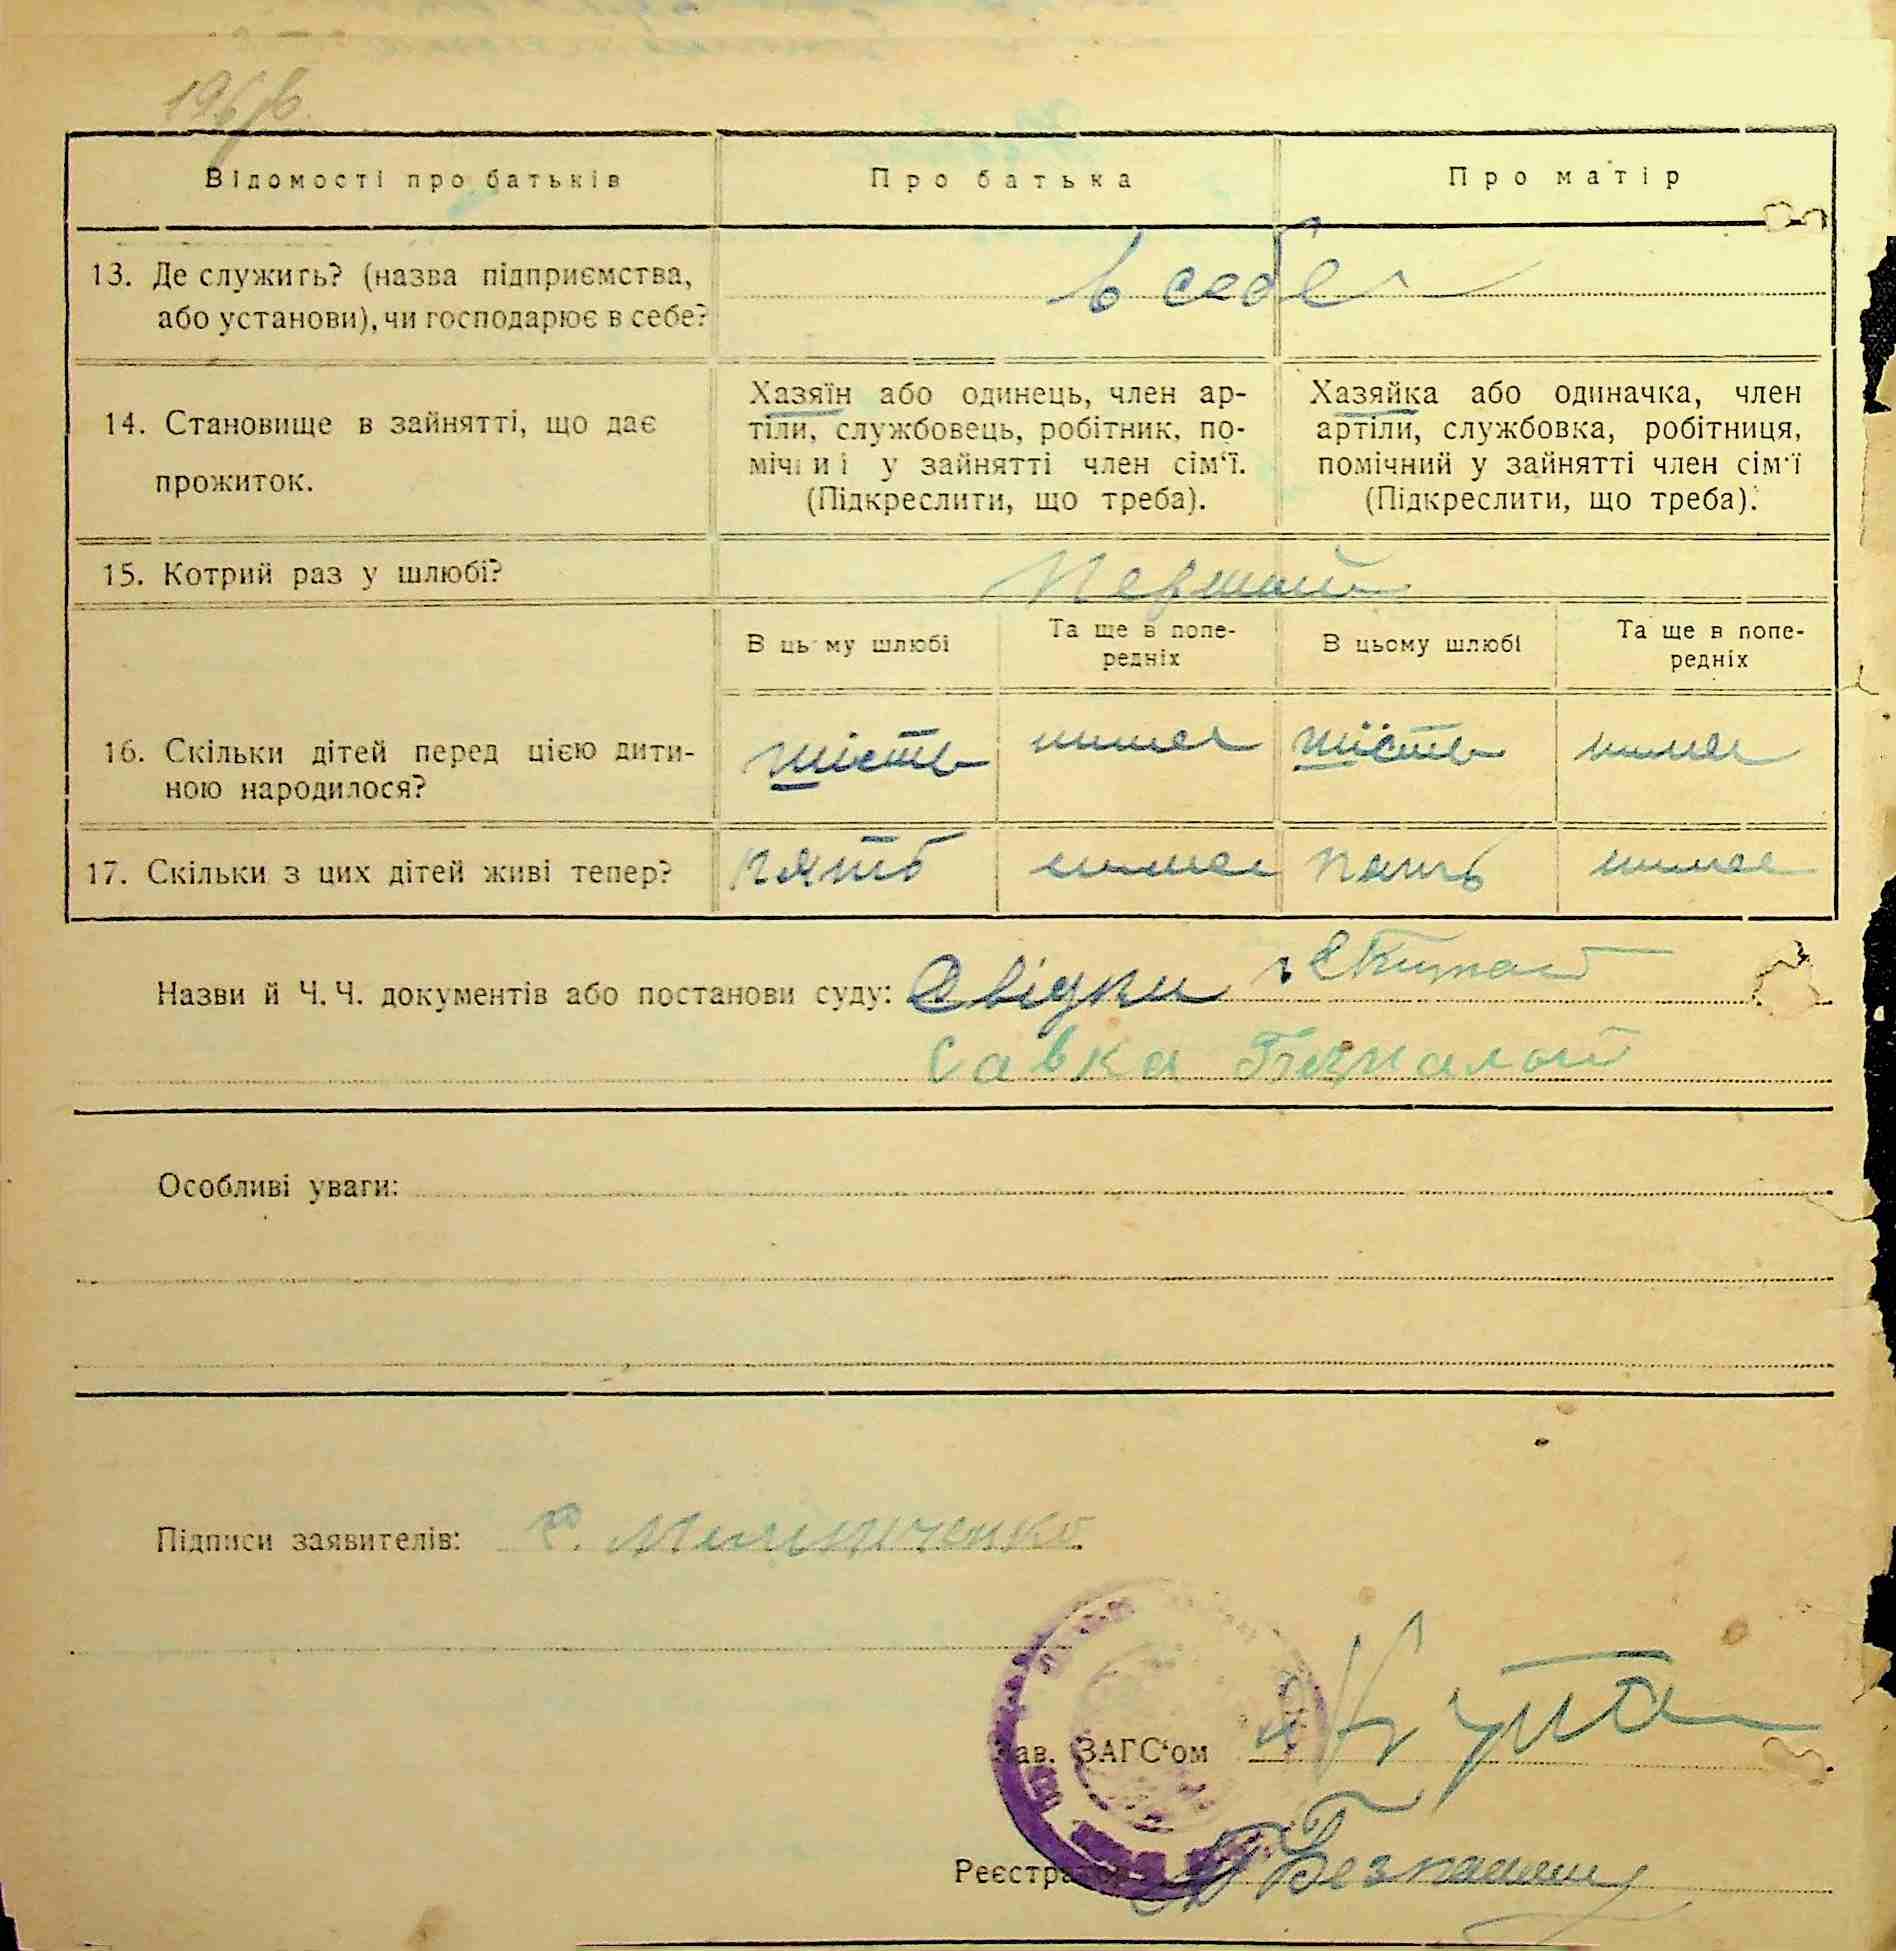 Відомості про батьків
Про батька
Про матір
13. Де служить? (назва підприємства,
або установи), чи господарює в себе?
в себе
14. Становище в зайнятті, що дає
прожиток.
Хазяїн або одинець, член ар-
тіли, службовець, робітник, по-
мічний у зайнятті член сім'ї.
(Підкреслити, що треба).
Хазяйка або одиначка, член
артіли, службовка, робітниця,
помічний у зайнятті член сім'ї
(Підкреслити, що треба).
15. Котрий раз у шлюбі?
Первший
В цьому шлюбі
Та ще в попе-
редніх
В цьому шлюбі
Та ще в попе-
редніх
16. Скільки дітей перед цією дити-
ною народилося?
шість
нимає
шість
нимає
17. Скільки з цих дітей живі тепер?
пять
нимає
пять
нимає
Назви й Ч. Ч. документів або постанови суду: Свідки
Савка Безпалой
Особливі уваги:
Підписи заявителів: Мельниченко
Зав. ЗАГС'ом
Реєстратор Безпалий